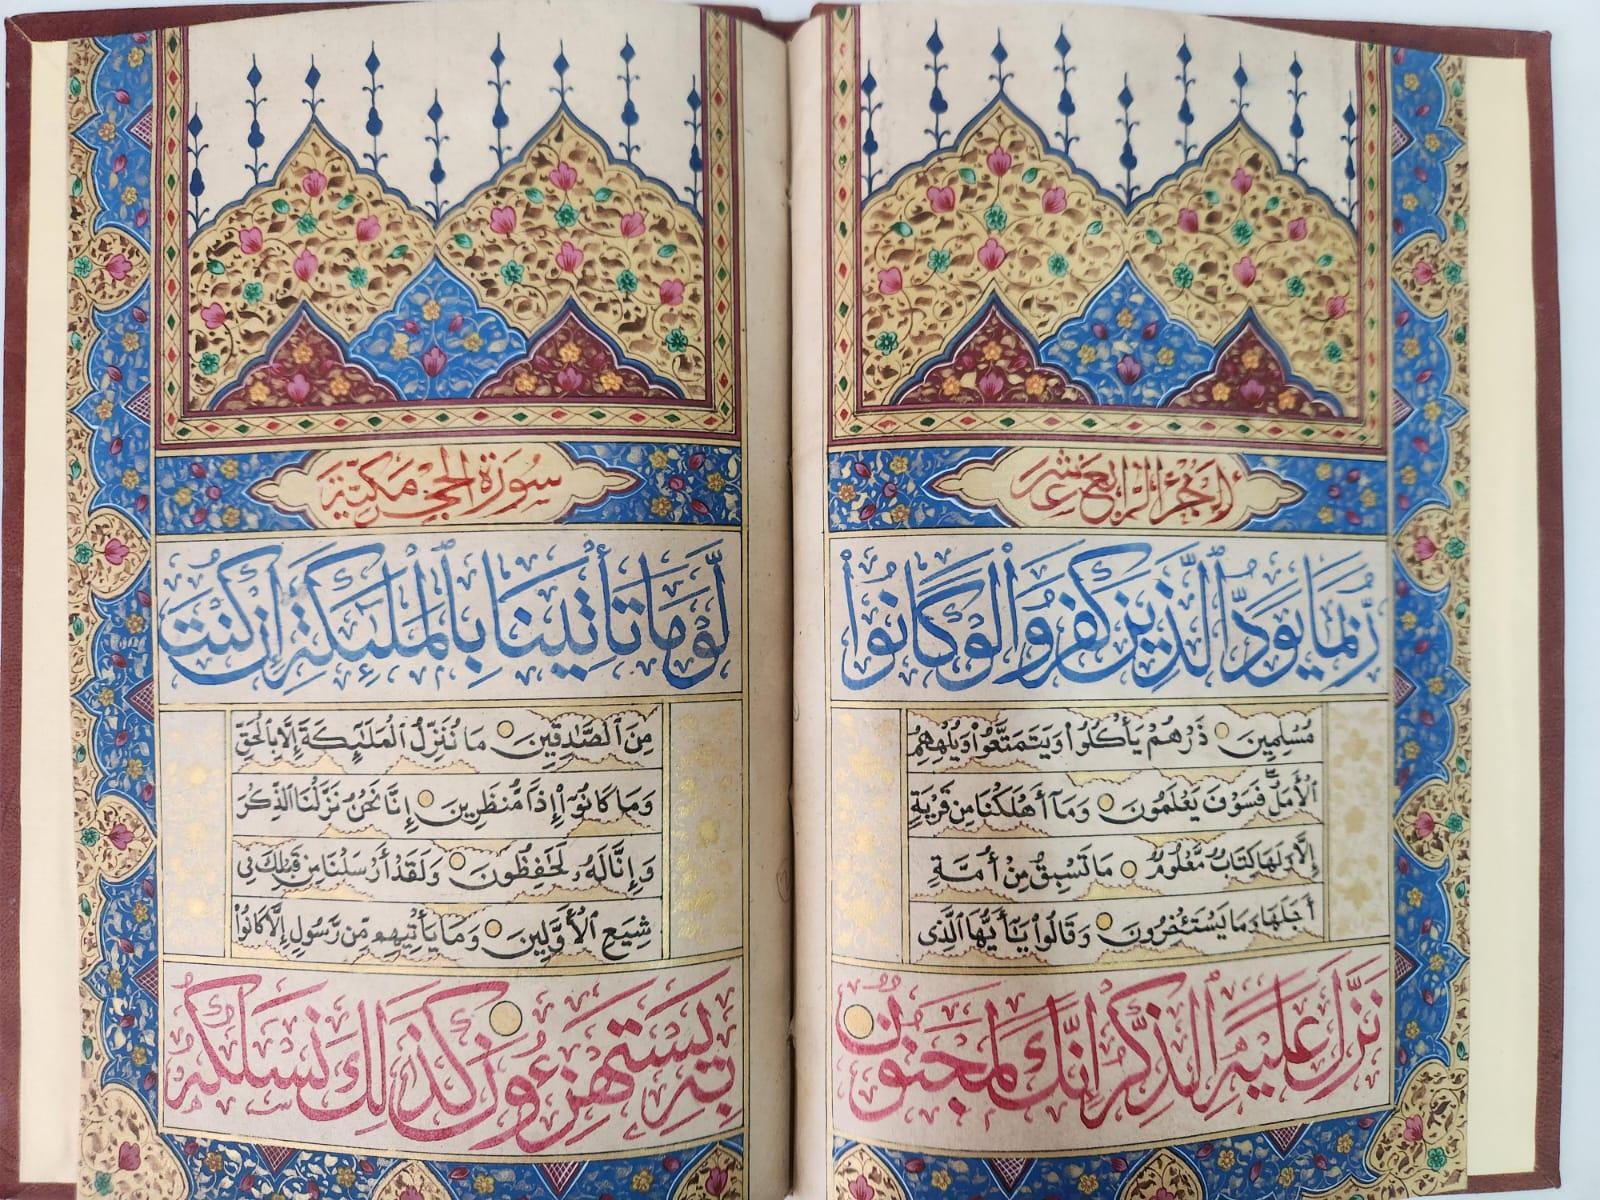 الجزء الرابع عشر
رُبَمَا يَوَدُّ ٱلَّذِينَ كَفَرُوا۟ لَوْ كَانُوا۟
مُسْلِمِينَ ذَرْهُمْ يَأْكُلُوا۟ وَيَتَمَتَّعُوا۟ وَيُلْهِهِمُ
ٱلْأَمَلُ فَسَوْفَ يَعْلَمُونَ وَمَآ أَهْلَكْنَا مِن قَرْيَةٍ
إِلَّا وَلَهَا كِتَابٌ مَّعْلُومٌ مَا تَسْبِقُ مِنْ أُمَّةٍ
أَجَلَهَا وَمَا يَسْتَـْٔخِرُونَ وَقَالُوا۟ يَٰٓأَيُّهَا ٱلَّذِى
نُزِّلَ عَلَيْهِ ٱلذِّكْرُ إِنَّكَ لَمَجْنُونٌ
سُورَةُ الحِجْرِ مَكِّيَّة
لَّوْمَا تَأْتِينَا بِٱلْمَلَٰٓئِكَةِ إِن كُنتَ
مِنَ ٱلصَّٰدِقِينَ مَا نُنَزِّلُ ٱلْمَلَٰٓئِكَةَ إِلَّا بِٱلْحَقِّ
وَمَا كَانُوٓا۟ إِذًا مُّنظَرِينَ إِنَّا نَحْنُ نَزَّلْنَا ٱلذِّكْرَ
وَإِنَّا لَهُۥ لَحَٰفِظُونَ وَلَقَدْ أَرْسَلْنَا مِن قَبْلِكَ فِى
شِيَعِ ٱلْأَوَّلِينَ وَمَا يَأْتِيهِم مِّن رَّسُولٍ إِلَّا كَانُوا۟
بِهِۦ يَسْتَهْزِءُونَ كَذَٰلِكَ نَسْلُكُهُۥ